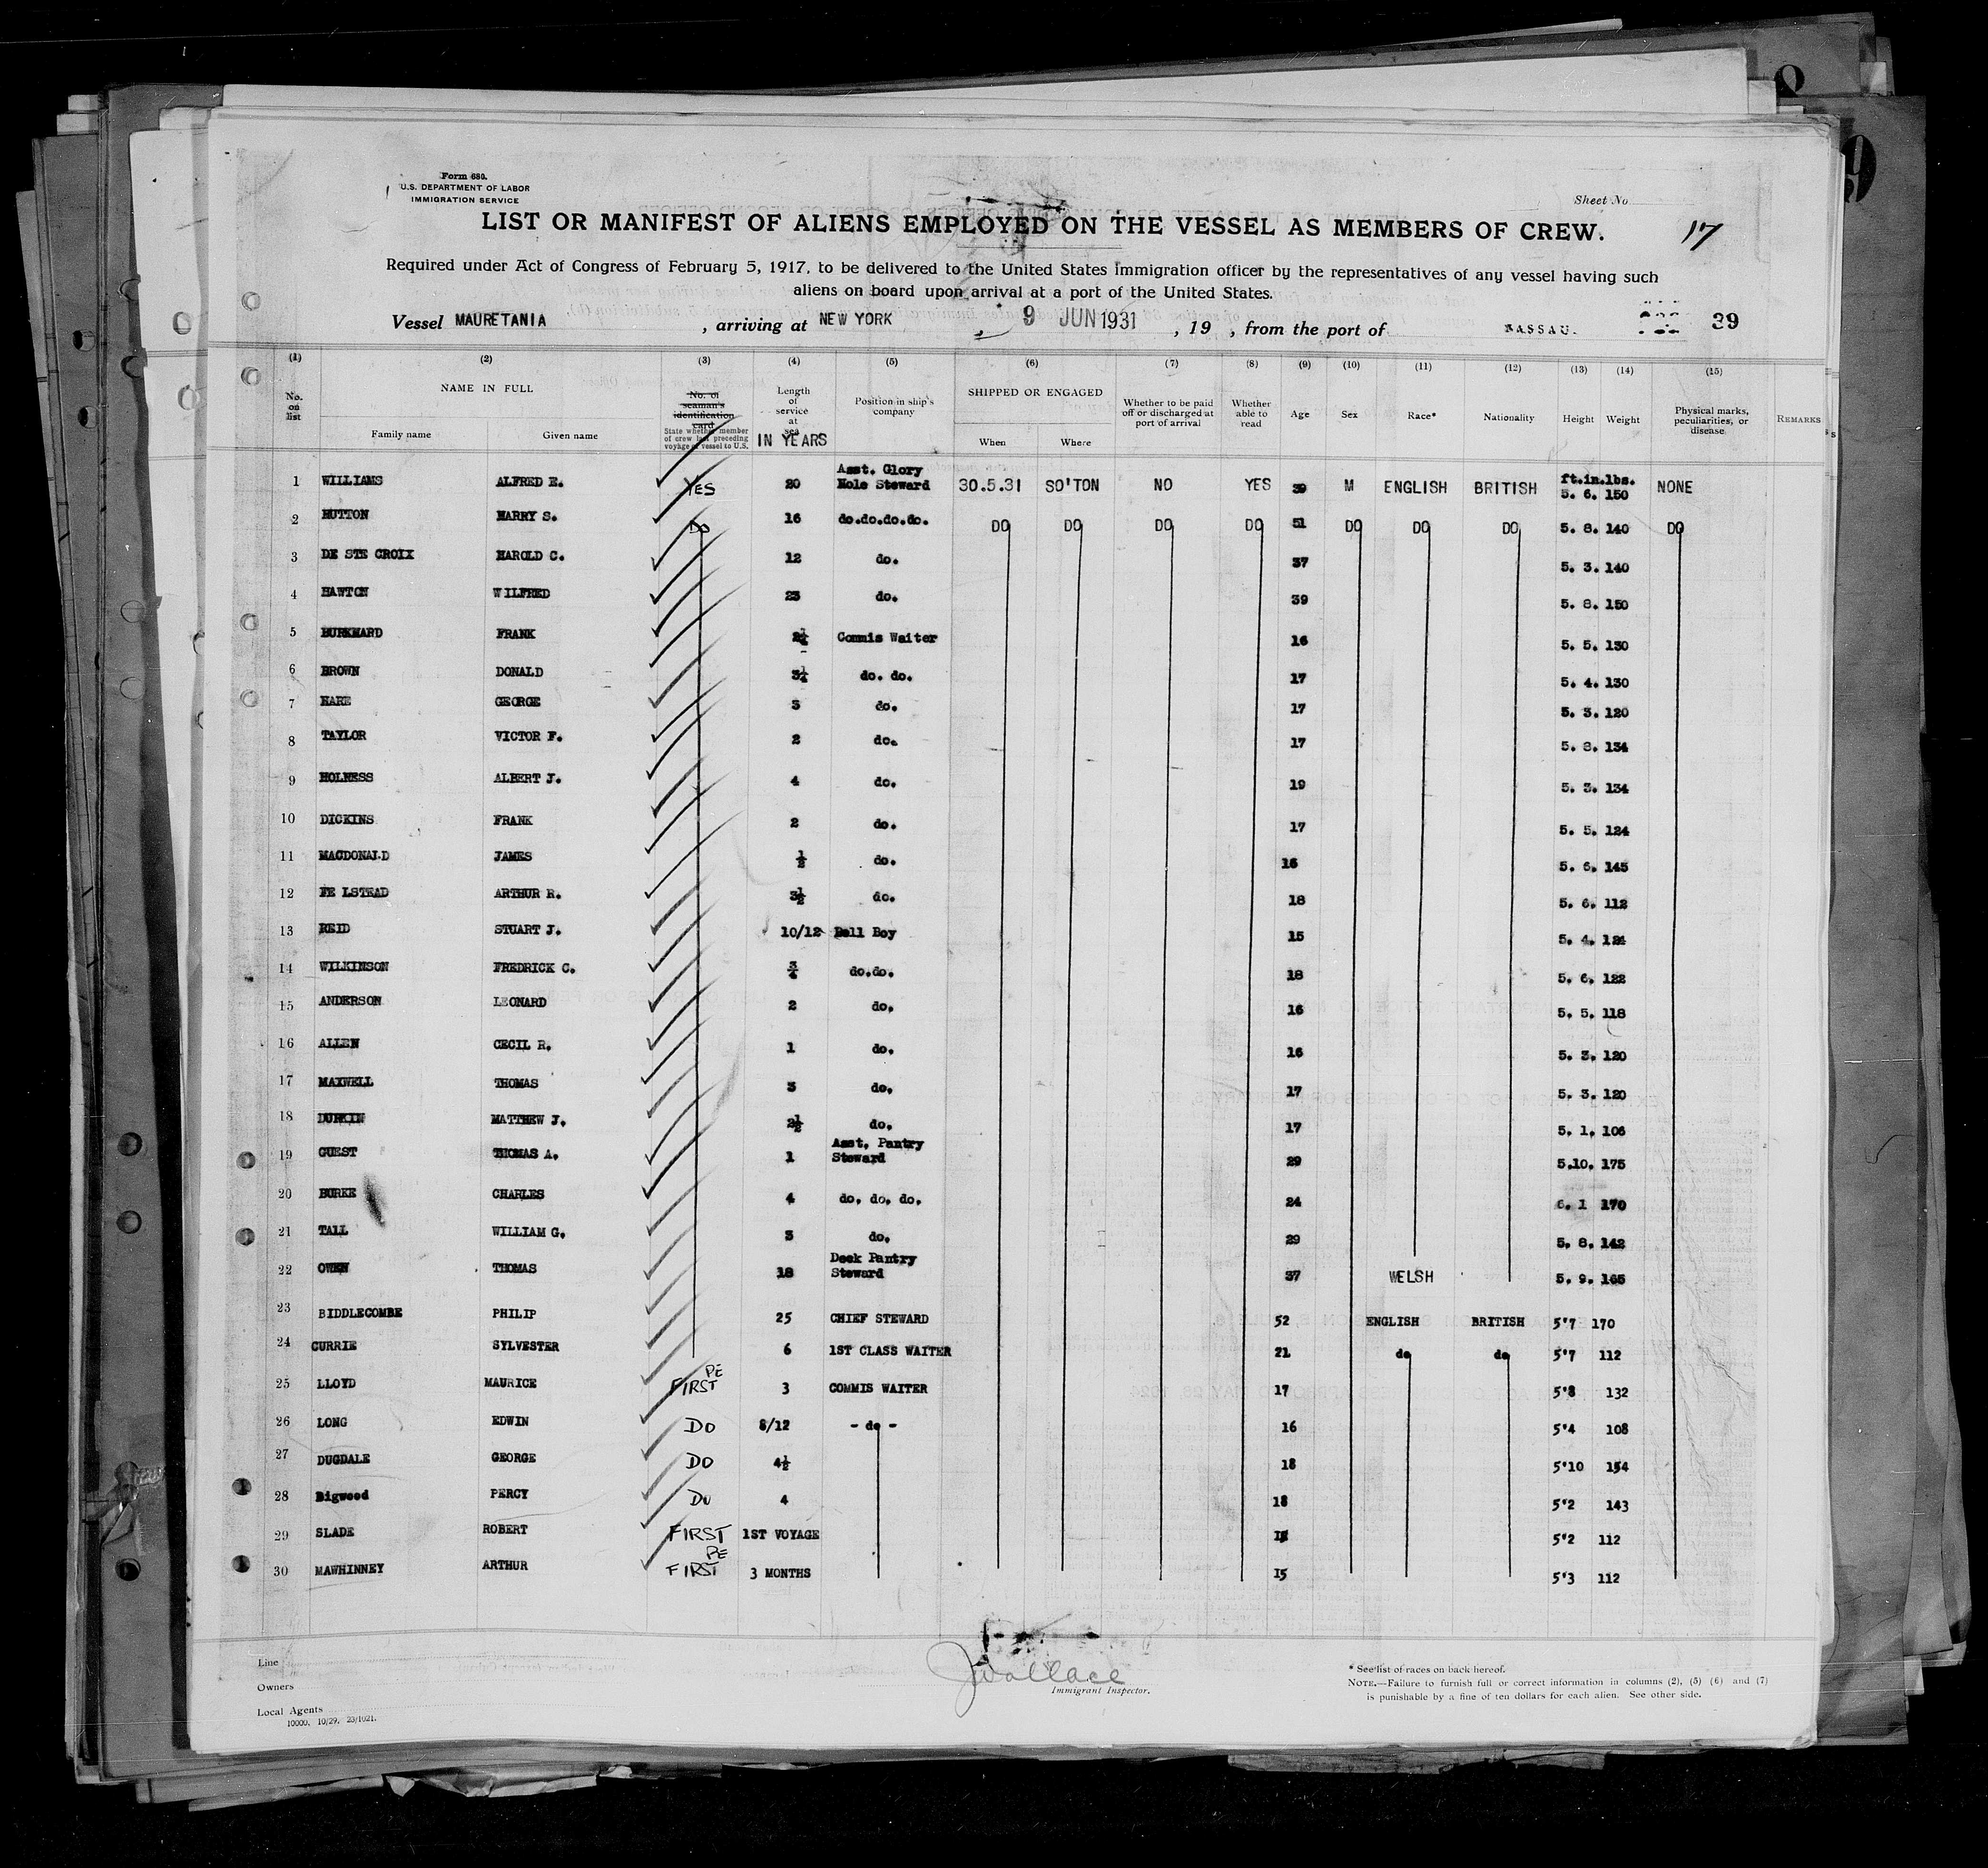 Form 680.
U.S. DEPARTMENT OF LABOR
IMMIGRATION SERVICE
Sheet No
LIST OR MANIFEST OF ALIENS EMPLOYED ON THE VESSEL AS MEMBERS OF CREW.
17
Required under Act of Congress of February 5, 1917, to be delivered to the United States immigration officer by the representatives of any vessel having such
aliens on board upon arrival at a port of the United States.
Vessel MAURETANIA , arriving at NEW YORK , 9 JUN 1931 , 19 , from the port of NASSAU. 39
(1) (2) (3) (4) (5) (6) (7) (8) (9) (10) (11) (12) (13) (14) (15)
No. on list NAME IN FULL Family name Given name No. of seaman's identification card State whether member of crew last preceding voyage of vessel to U.S. Length of service at sea IN YEARS Position in ship's company SHIPPED OR ENGAGED When Where Whether to be paid off or discharged at port of arrival Whether able to read Age Sex Race* Nationality Height Weight Physical marks, peculiarities, or disease REMARKS
1 WILLIAMS ALFRED E. YES 20 Asst. Glory Hole Steward 30.5.31 SO'TON NO YES 39 M ENGLISH BRITISH ft.in.lbs. 5. 6. 150 NONE
2 HUTTON HARRY S. DO 16 do.do.do.do. DO DO DO DO 51 DO DO DO 5. 8. 140 DO
3 DE STE CROIX HAROLD C. 12 do. 37 5. 3. 140
4 HAWTON WILFRED 23 do. 39 5. 8. 150
5 BURKHARD FRANK 2¼ Commis Waiter 16 5. 5. 130
6 BROWN DONALD 3¼ do. do. 17 5. 4. 130
7 HARE GEORGE 3 do. 17 5. 3. 120
8 TAYLOR VICTOR F. 2 do. 17 5. 8. 134
9 HOLNESS ALBERT J. 4 do. 19 5. 3. 134
10 DICKINS FRANK 2 do. 17 5. 5. 124
11 MACDONALD JAMES ½ do. 16 5. 6. 145
12 FELSTEAD ARTHUR R. 3½ do. 18 5. 6. 112
13 REID STUART J. 10/12 Bell Boy 15 5. 4. 124
14 WILKINSON FREDRICK C. ¾ do.do. 18 5. 6. 122
15 ANDERSON LEONARD 2 do. 16 5. 5. 118
16 ALLEN CECIL R. 1 do. 16 5. 3. 120
17 MAXWELL THOMAS 3 do. 17 5. 3. 120
18 DURKIN MATTHEW J. 2½ do. 17 5. 1. 106
19 GUEST THOMAS A. 1 Asst. Pantry Steward 29 5.10. 175
20 BURKE CHARLES 4 do. do. do. 24 6. 1 170
21 TALL WILLIAM G. 3 do. 29 5. 8. 142
22 OWEN THOMAS 18 Deck Pantry Steward 37 WELSH 5. 9. 165
23 BIDDLECOMBE PHILIP 25 CHIEF STEWARD 52 ENGLISH BRITISH 5'7 170
24 CURRIE SYLVESTER 6 1ST CLASS WAITER 21 do do 5'7 112
25 LLOYD MAURICE FIRST PE 3 COMMIS WAITER 17 5'8 132
26 LONG EDWIN DO 8/12 - do - 16 5'4 108
27 DUGDALE GEORGE DO 4½ 18 5'10 154
28 Bigwood PERCY DO 4 18 5'2 143
29 SLADE ROBERT FIRST 1ST VOYAGE 5'2 112
30 MAWHINNEY ARTHUR FIRST PE 3 MONTHS 15 5'3 112
Line
Owners
Local Agents
10000. 10/29. 23/1021.
JWallace
Immigrant Inspector.
* See list of races on back hereof.
NOTE.—Failure to furnish full or correct information in columns (2), (5) (6) and (7)
is punishable by a fine of ten dollars for each alien. See other side.